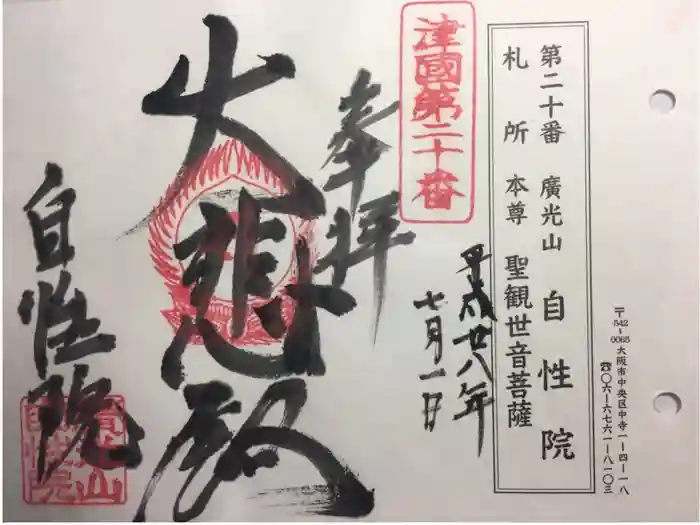 〒542-0065 大阪市中央区中寺一-四-一八
☎〇六-六七六一-八一〇三
第二十番 廣光山 自性院
札所本尊 聖観世音菩薩
津國第二十番
奉拝
平成廿八年
七月一日
大悲殿
自性院